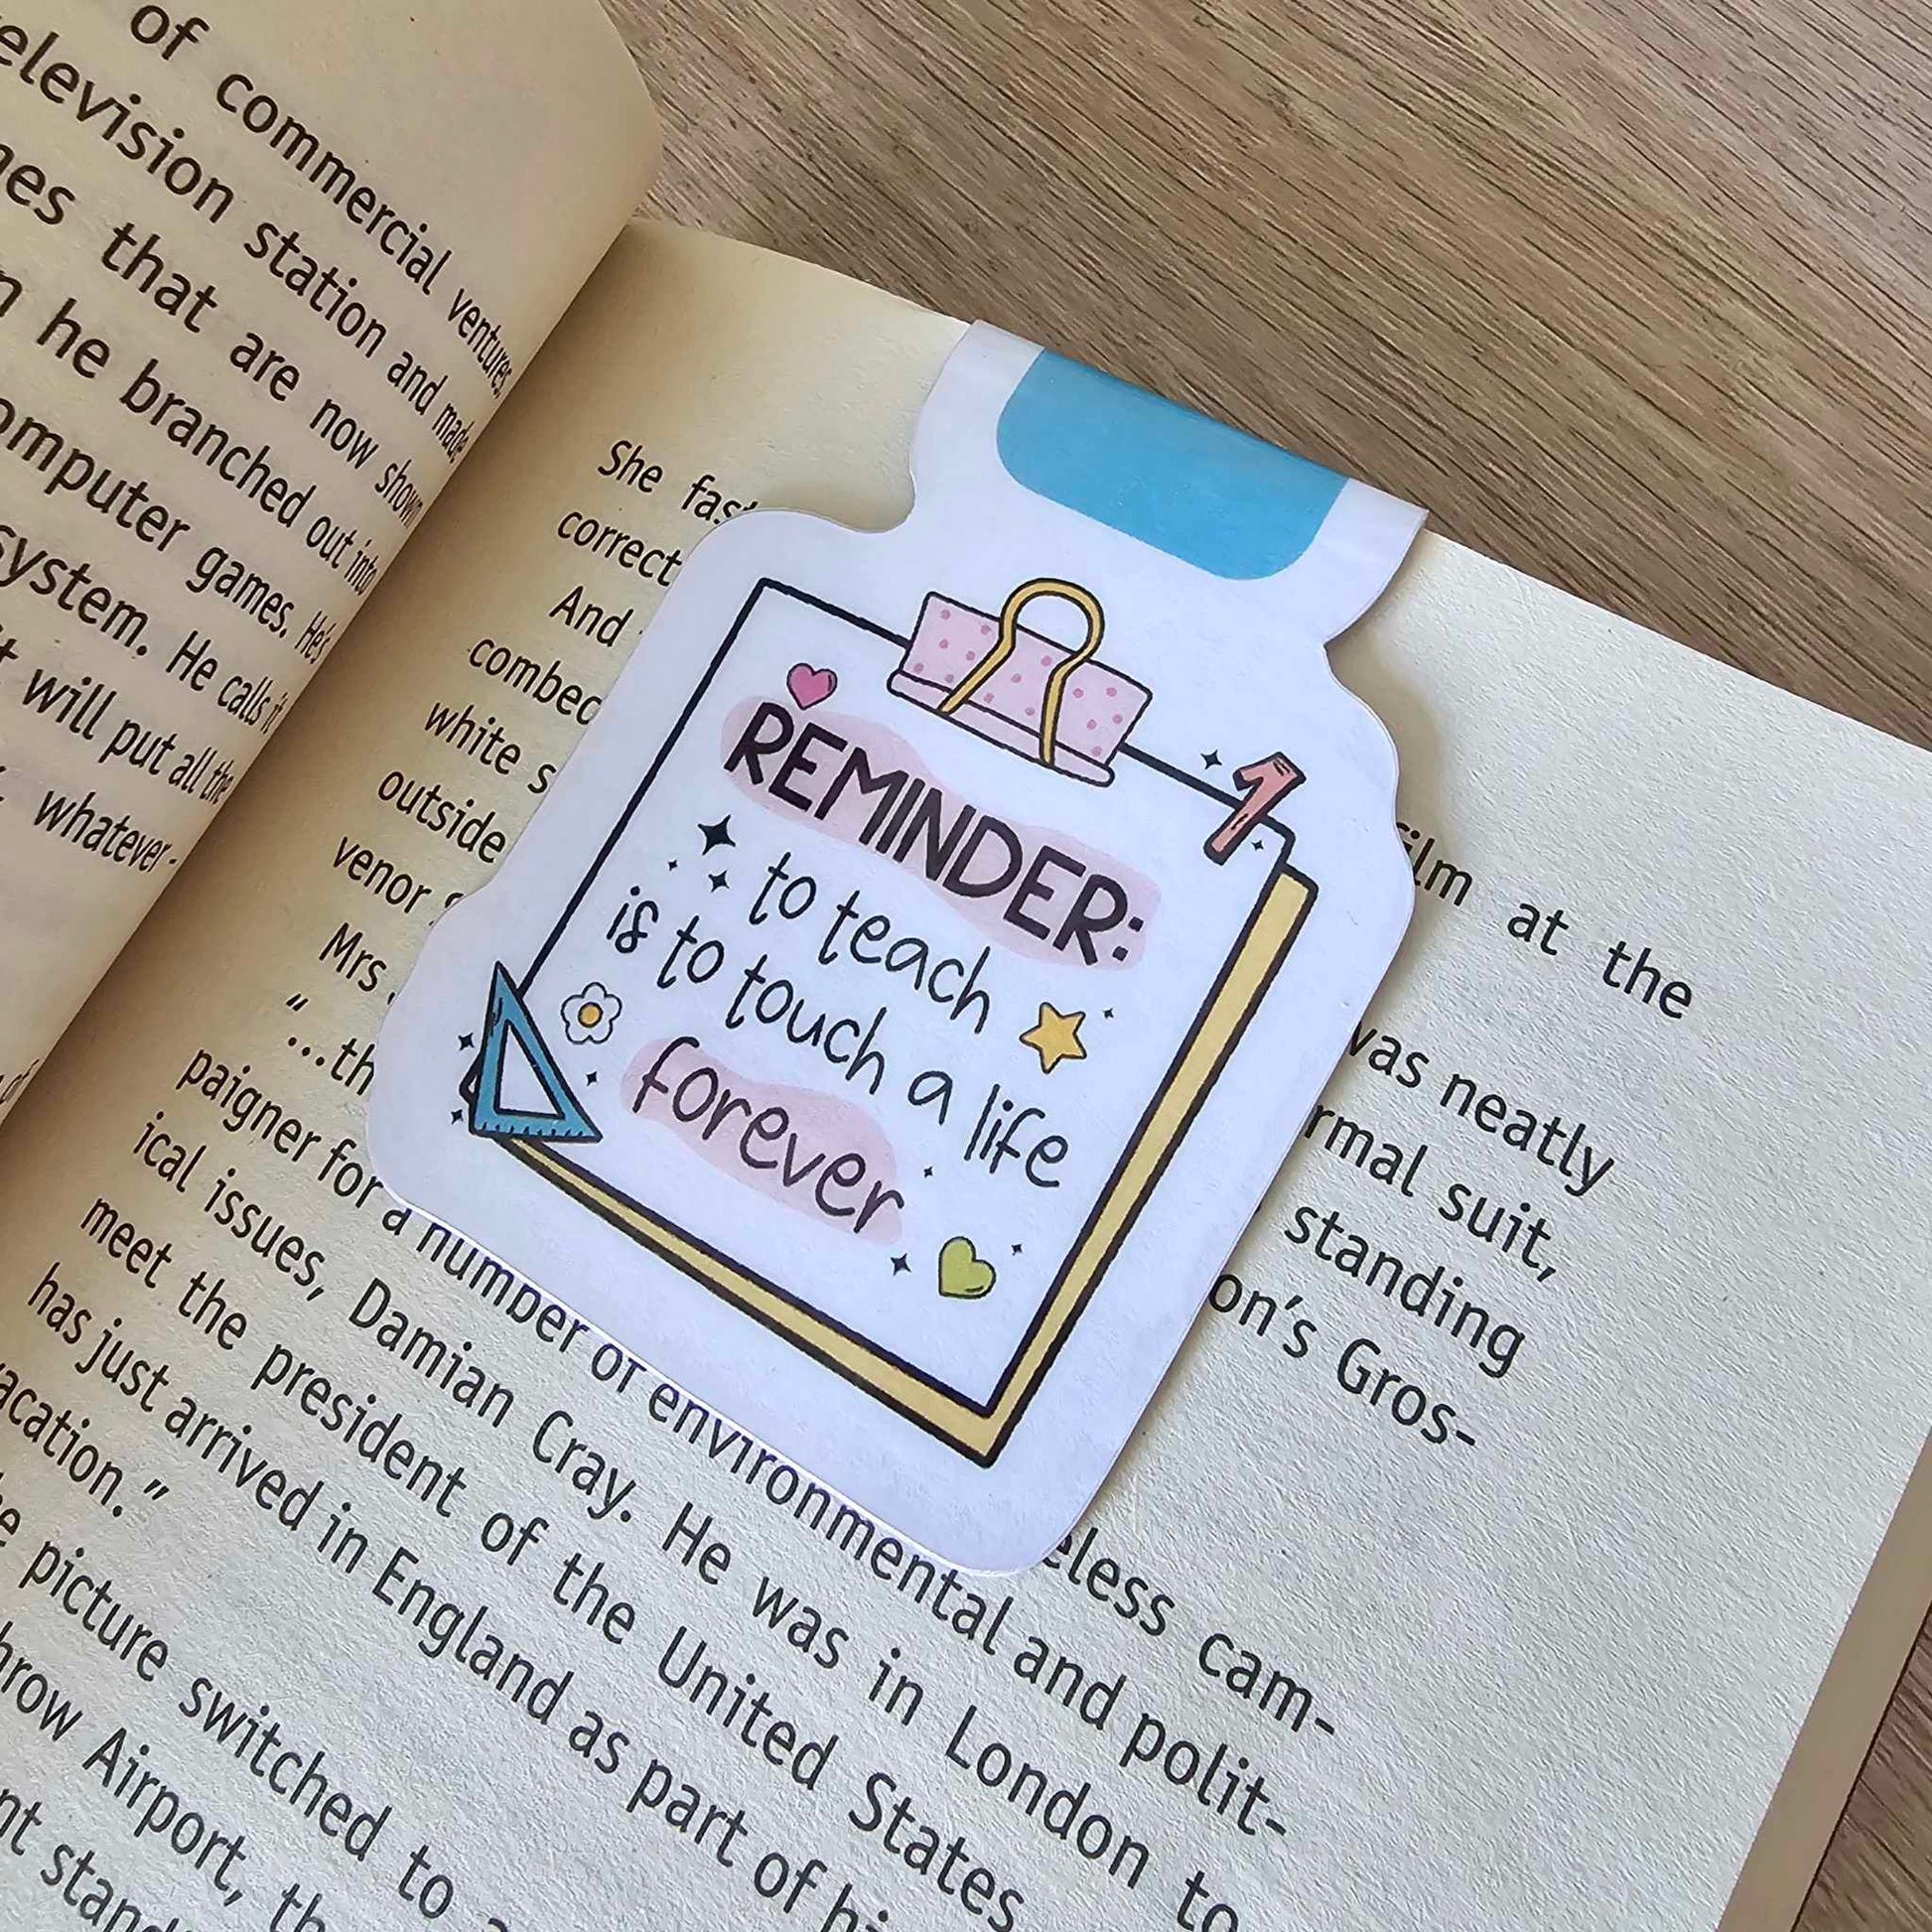 of commercial ventures
television station and made
that are now shown
he branched out into
computer games. He's
system. He calls it
will put all the
whatever-
She fast
correct
And
combed
white s
outside
venor
Mrs.
"...th
film at the
was neatly
rmal suit,
standing
on's Gros-
eless cam-
paigner for a number of environmental and polit-
ical issues, Damian Cray. He was in London to
meet the president of the United States
has just arrived in England as part of hi
vacation."
picture switched to a
hrow Airport, th
nt stand
REMINDER:
to teach
is to touch a life
forever
1